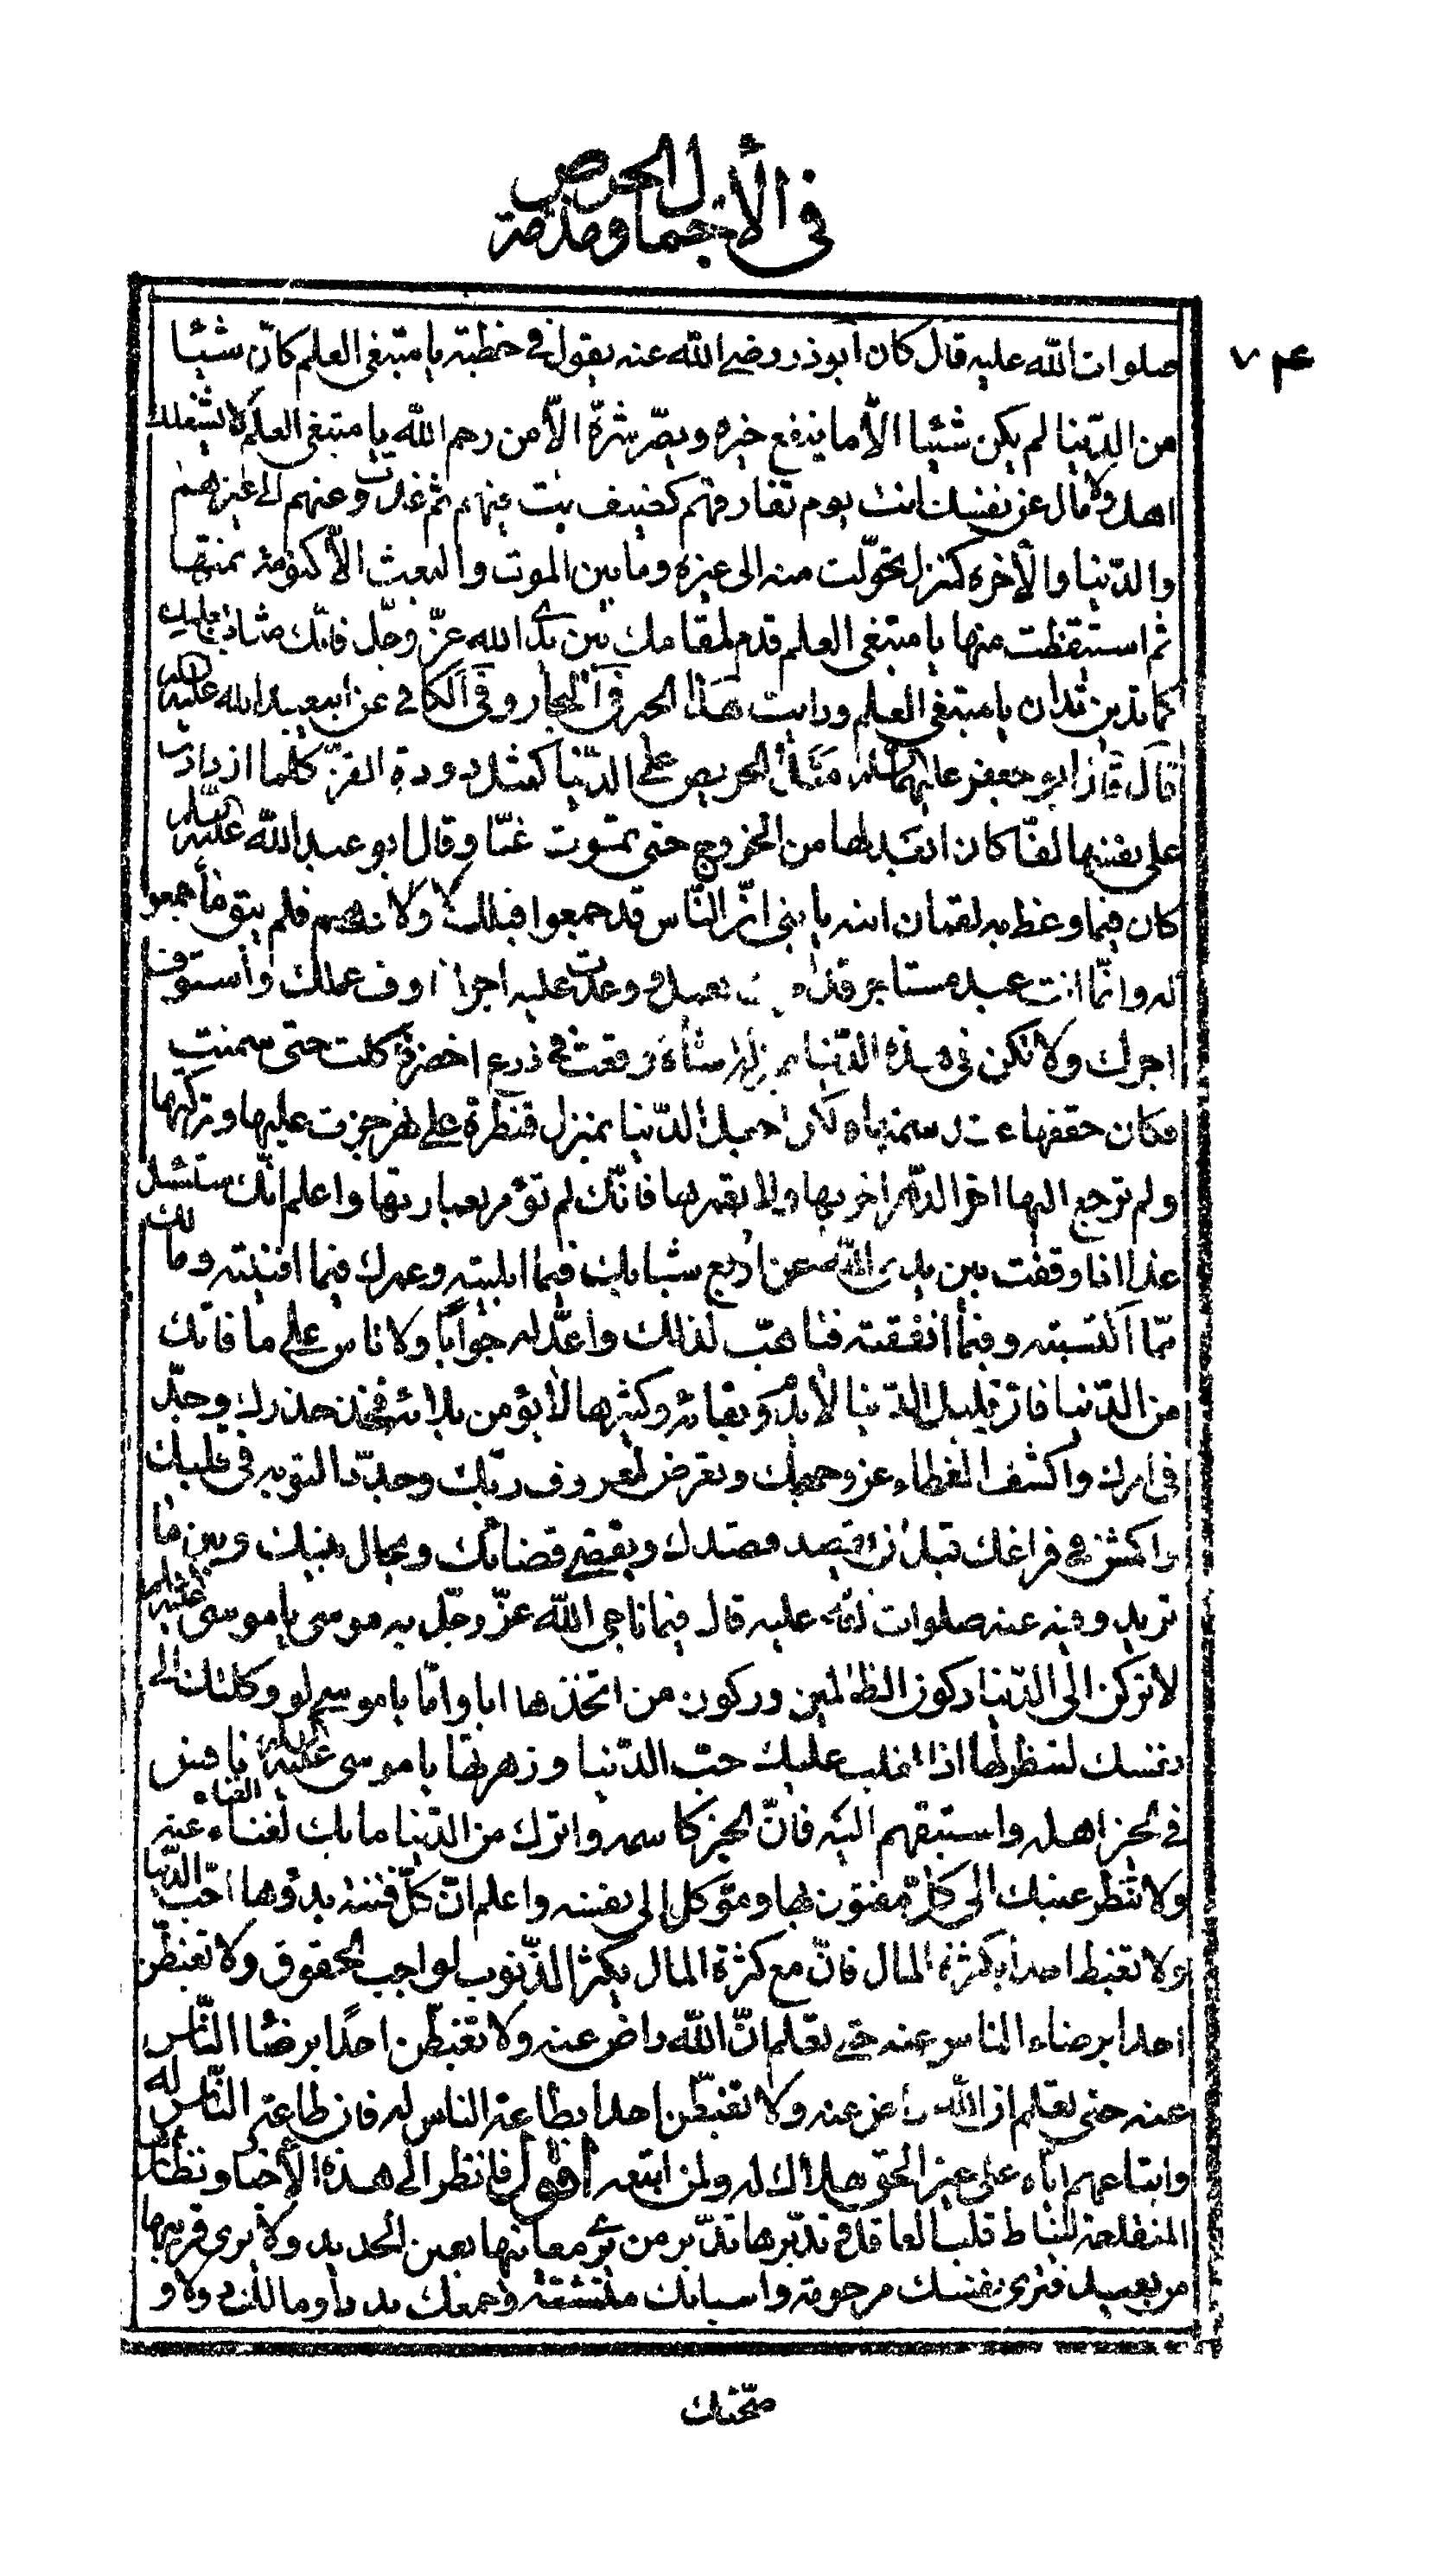 في الأجمال ومذمة الحرص
٧ عم
صلوات الله عليه قال كان أبوذر رضي الله عنه يقول في خطبته يا مبتغي العلم كأنّ شيئا
من الدّنيا لم يكن شيئا الّا ما ينفع خيره ويضرّ شرّه الّا من رحم الله يا مبتغي العلم لا يشغلك
اهل ولا مال عن نفسك انت يوم تفارقهم كضيف بتّ فيهم ثم غدوت عنهم الى غيرهم
والدّنيا والآخرة كمنزل تحوّلت منه الى غيره وما بين الموت والبعث الّا كنومة نمتها
ثم استيقظت منها يا مبتغي العلم قدم لمقامك بين يدي الله عزّ وجلّ فانّك مثاب بعملك
كما تدين تدان يا مبتغي العلم ورايت هذا الخبر في البحار وفي الكافي عن ابيعبد الله عليه السلام
قال قال ابو جعفر عليهما السلام مثل الحريص على الدّنيا كمثل دودة القزّ كلما ازدادت
على نفسها لفّا كان ابعد لها من الخروج حتى تموت غمّا وقال ابو عبد الله عليه السلام
كان فيما وعظ به لقمان ابنه يا بني انّ الناس قد جمعوا قبلك لاولادهم فلم يبق ما جمعوا
له وانّما انت عبد مستاجر قد بعمل ووعدت عليه اجرا اوف عملك واستوف
اجرك ولا تكن في هذه الدّنيا بمنزلة شاة وقعت في زرع اخضر فاكلت حتى سمنت
فكان حتفها عند سمنها ولكن اجعل الدّنيا بمنزل قنطرة على نهر جزت عليها وتركتها
ولم ترجع اليها اخر الدّهر اخربها ولا تعمرها فانّك لم تؤمر بعمارتها واعلم انّك ستسئل
غدا اذا وقفت بين يدي الله عن اربع شبابك فيما ابليته وعمرك فيما افنيته ومالك
ممّا اكتسبته وفيما انفقته فتاهّب لذلك واعدّ له جوابا ولا تاس على ما فاتك
من الدّنيا فان قليل الدّنيا لا يدوم بقائه وكثيرها لا يؤمن بلائه فخذ حذرك وجدّ
في امرك واكشف الغطاء عن وجهك وتعرض لمعروف ربّك وجدّد التوبه في قلبك
واكمش في فراغك قبل ان يقصد قصدك ويقضي قضائك ويحال بينك وبين ما
تريد وفيه عنه صلوات الله عليه قال فيما ناجى الله عزّ وجلّ به موسى يا موسى عليه السلام
لا تركن الى الدّنيا ركون الظالمين وركون من اتخذها ابا وامّا يا موسى لو وكلتك الى
نفسك لتنظر لها اذا لغلب عليك حبّ الدّنيا وزهرتها يا موسى عليه السلام نافس
في الخير اهله واستبقهم اليه فانّ الخير كاسمه واترك من الدّنيا ما بك الغناء عنه
ولا تنظر عينك الى كلّ مفتون بها وموكل الى نفسه واعلم انّ كلّ فتنة بدؤها احبّ الدّنيا
ولا تغبط احدا بكثرة المال فانّ مع كثرة المال يكثر الذّنوب لواجب الحقوق ولا تغبطن
احدا برضاء الناس عنه حتى تعلم انّ الله راض عنه ولا تغبطن احدا برضا النّاس
عنه حتى تعلم ان الله راض عنه ولا تغبطن احدا بطاعة الناس له فان طاعة النّاس له
واتباعهم اياه على غير الحق هلاك له ولمن اتبعه اقول فانظر الى هذه الأخبار ونظائر
المنقلعة لنياط قلب العاقل وتدبّرها تدّبر من يرى معانيها بعين الحديد ولا يرى قريبها
من بعيد فترى نفسك مرحومة واسبابك متشتّة وجمعك بددا ومالك ولا و
صحتك